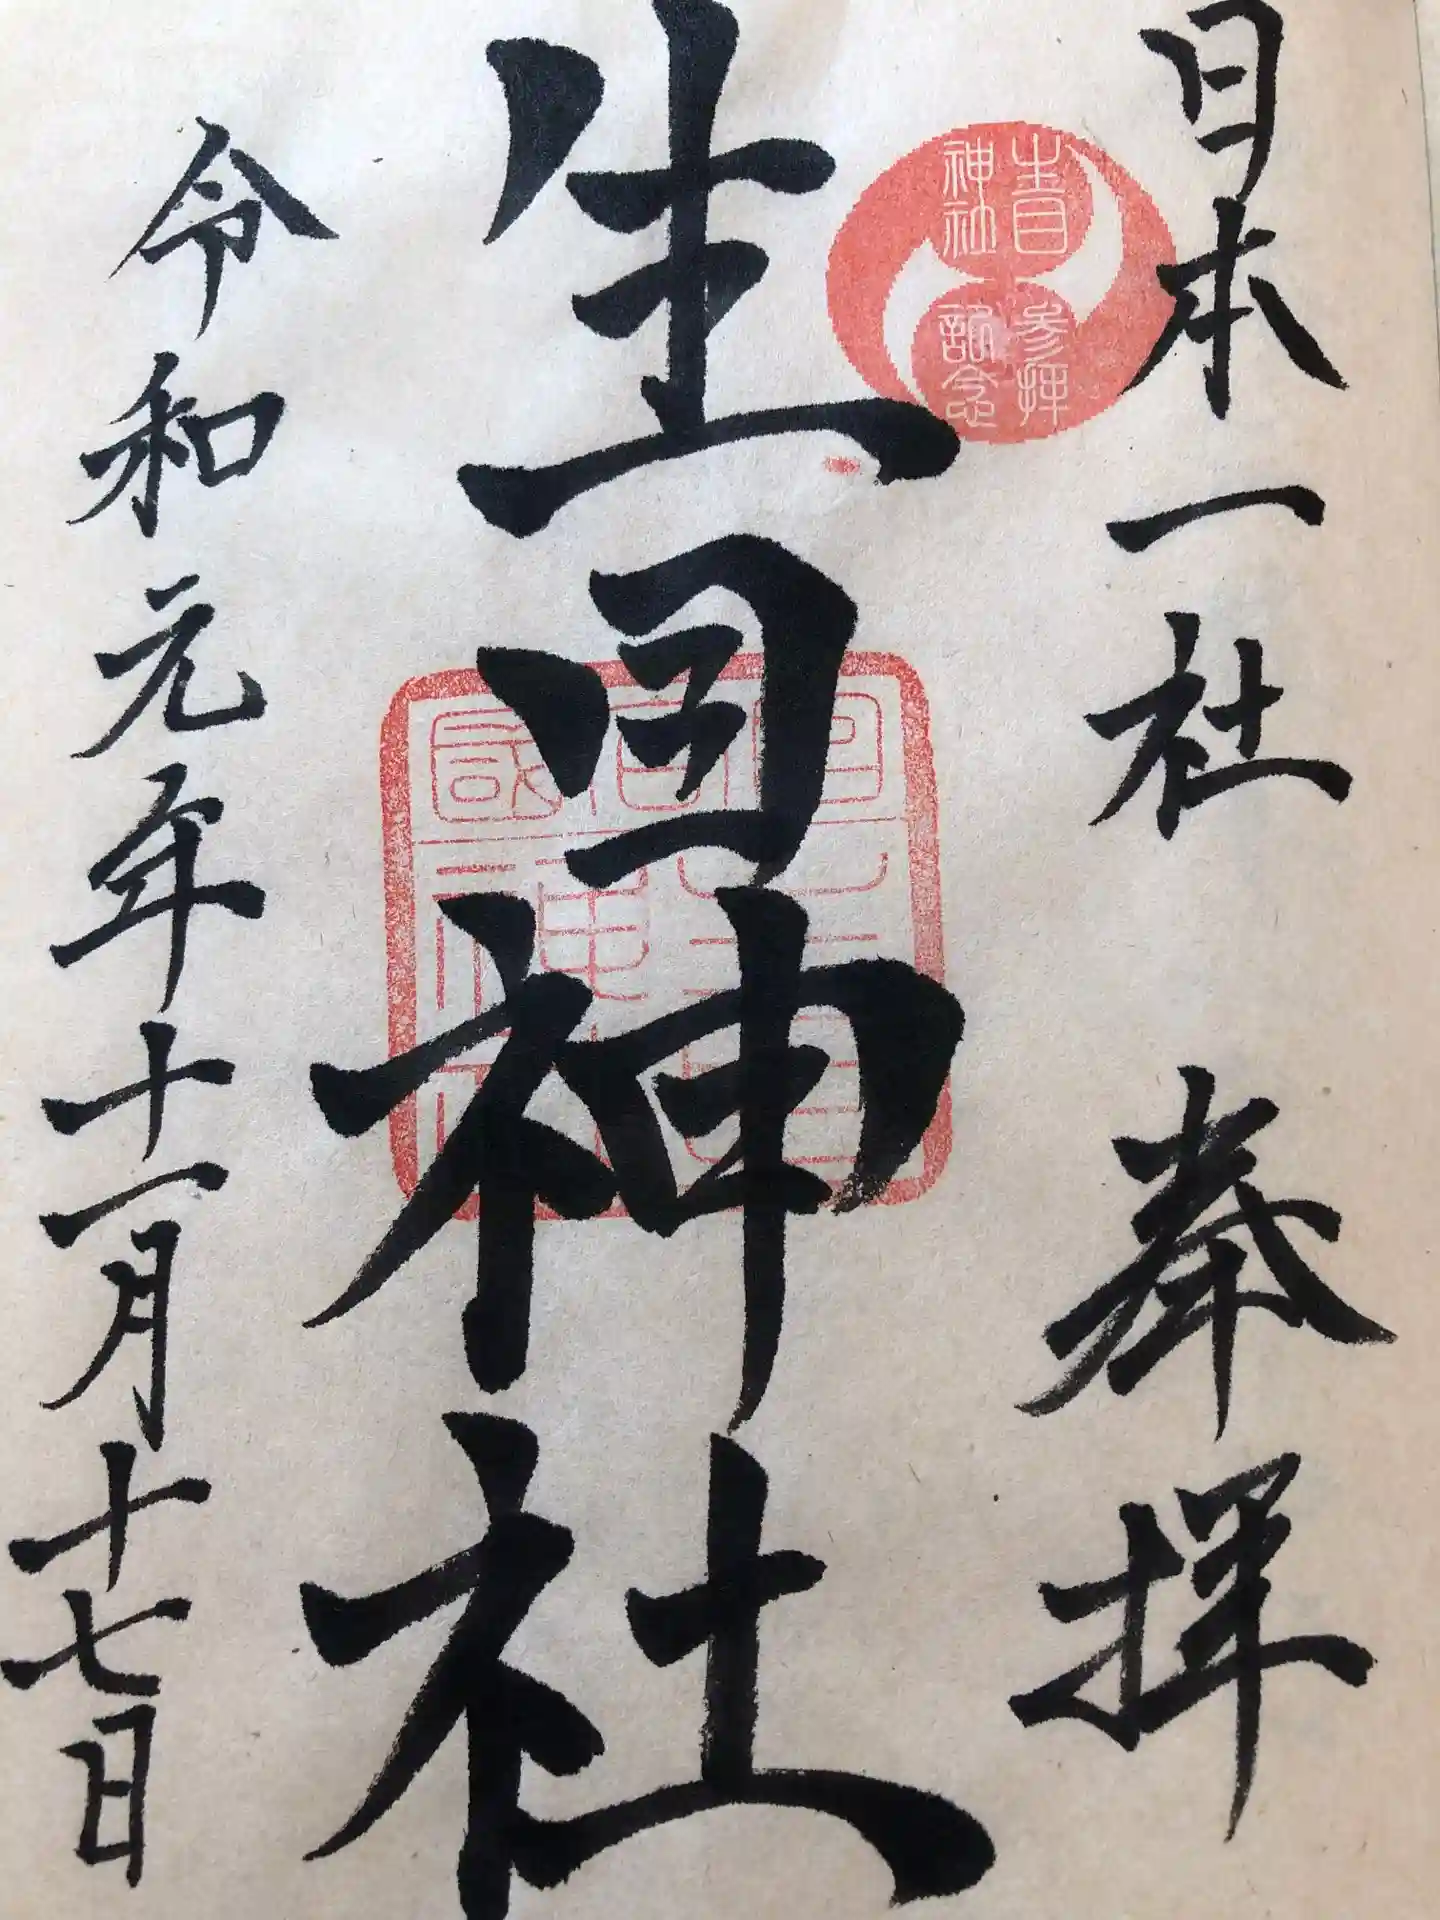 日本一社　奉拝
生目神社
参拝
記念
生目神社
令和元年十一月十七日